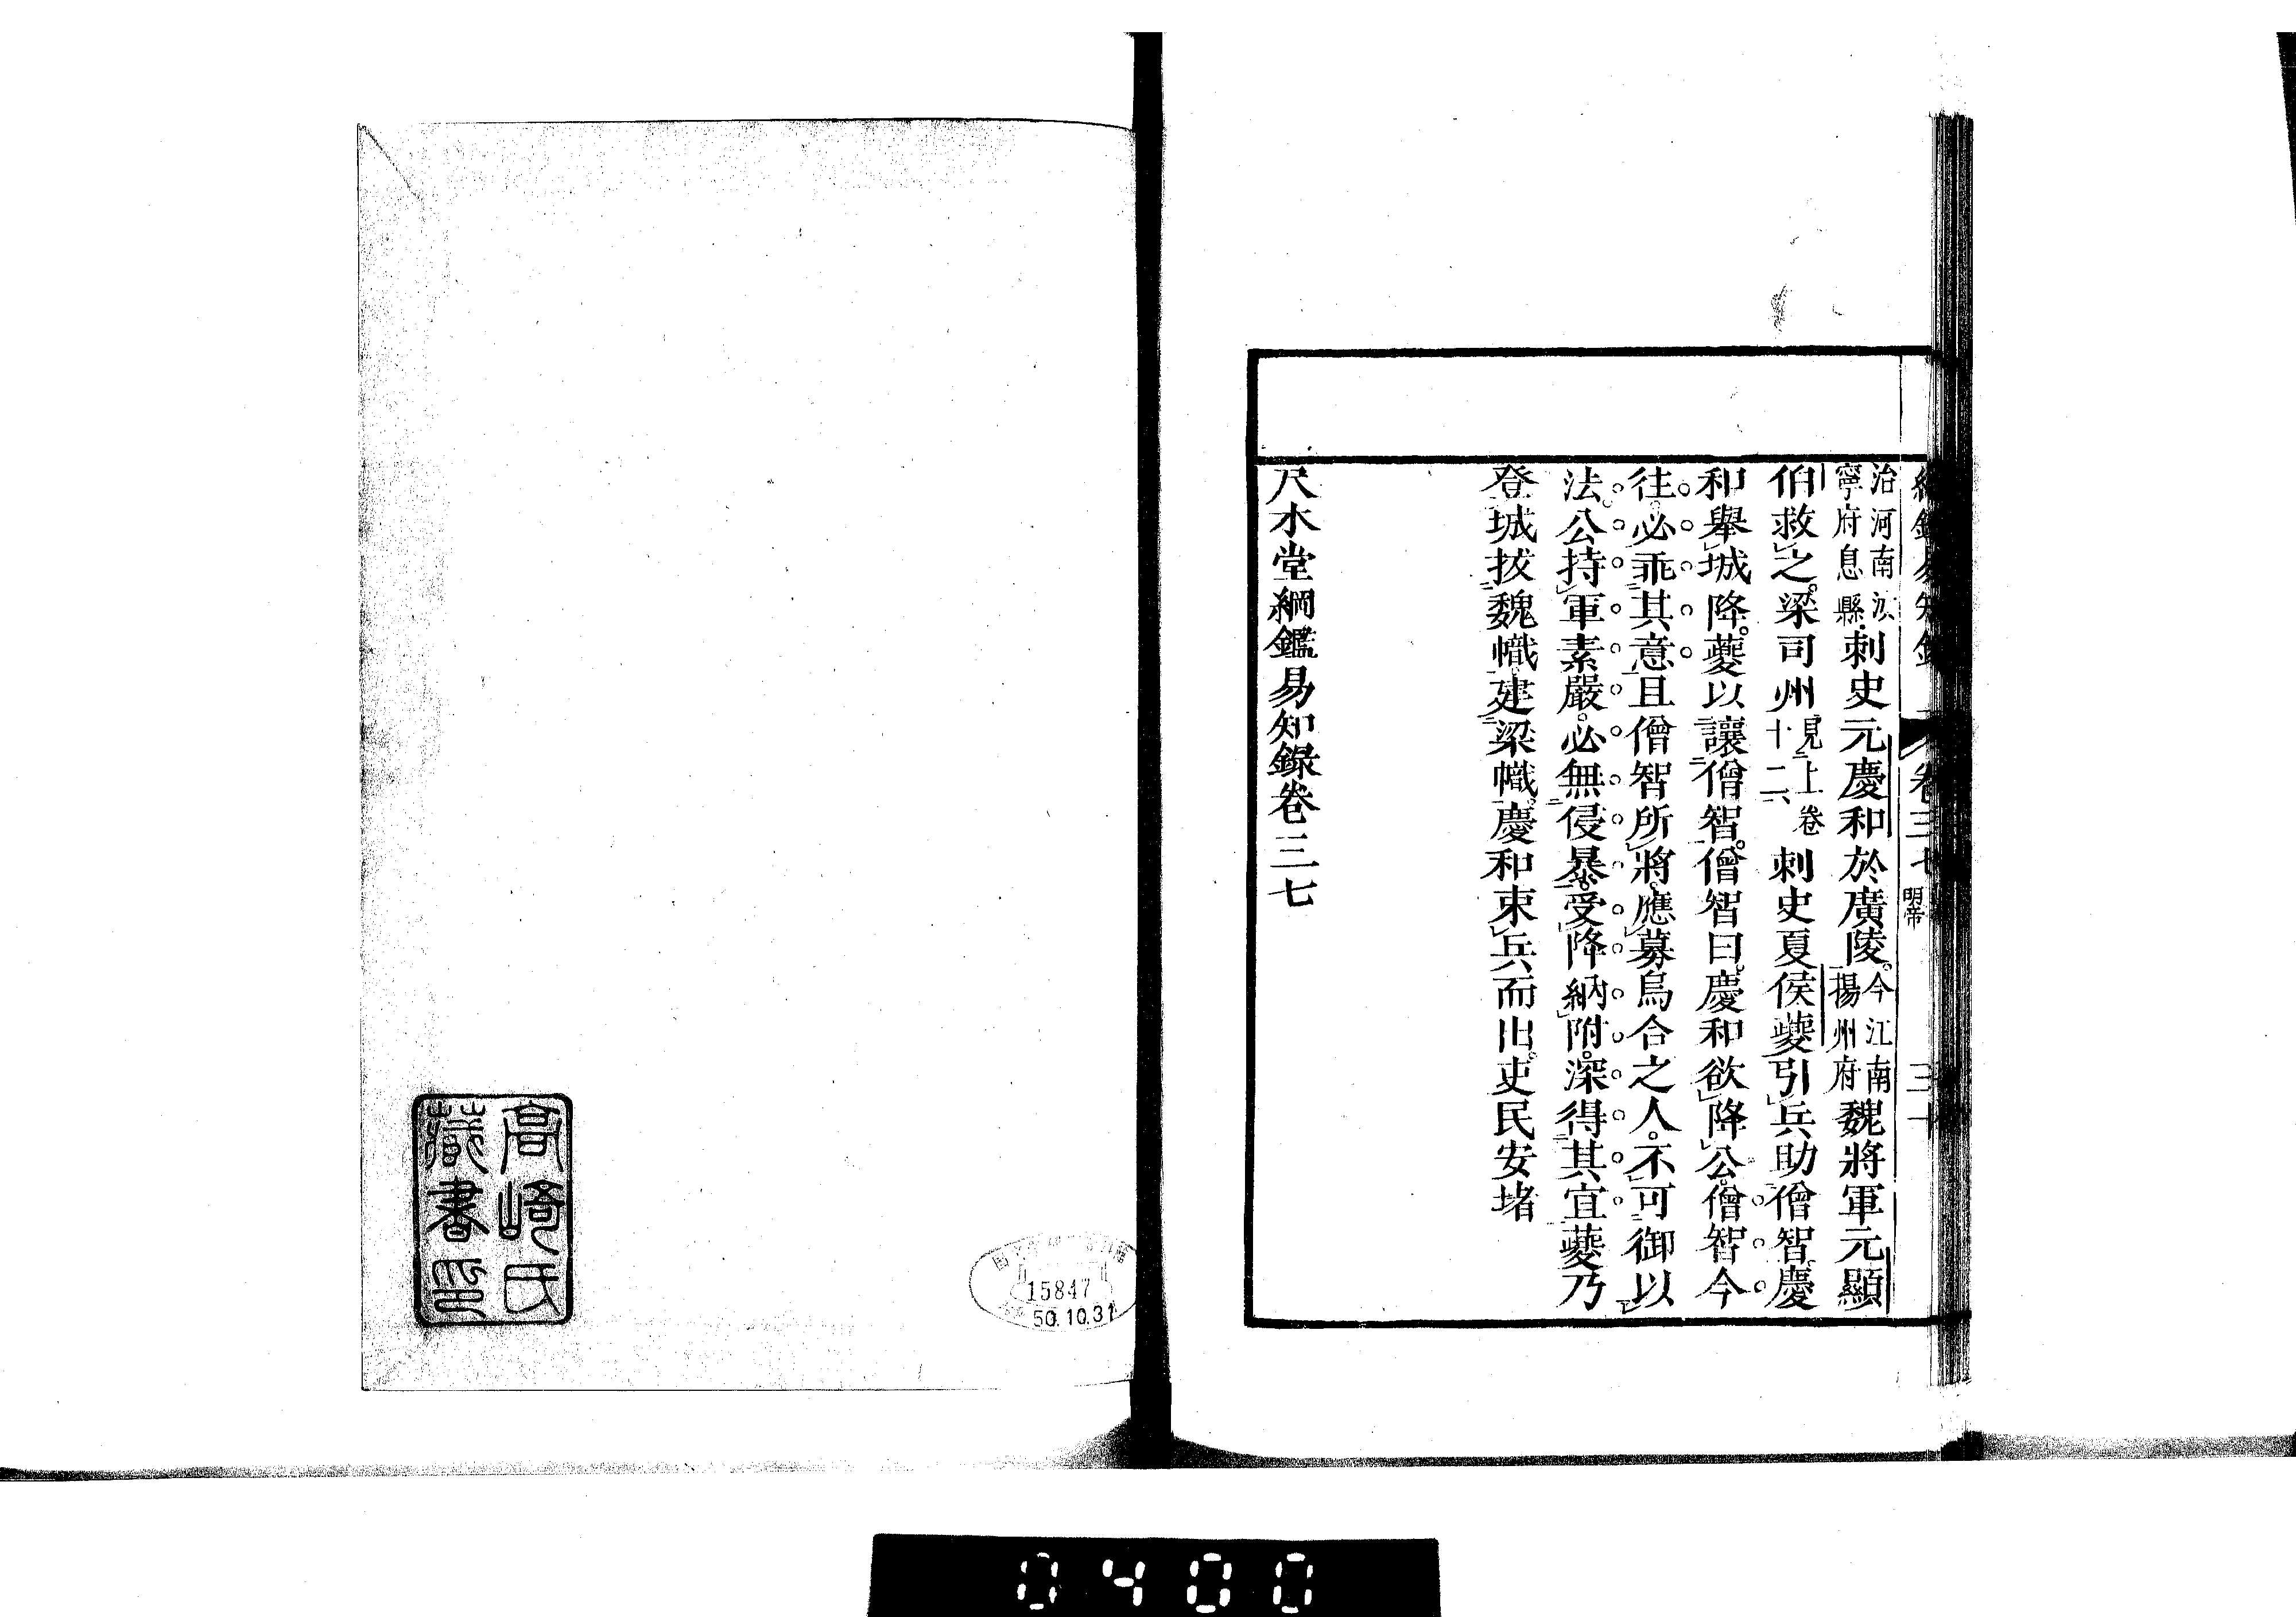 治河南汝寧府息縣刺史元慶和於廣陵。今江南揚州府魏將軍元顯
伯救之。梁司州見上卷十二六刺史夏侯夔引兵助僧智。慶
和舉城降。夔以讓僧智。僧智曰。慶和欲降公。僧智今
往。必乖其意。且僧智所將。應募烏合之人。不可御以
法。公持軍素嚴。必無侵暴。受降納附。深得其宜。夔乃
登城拔魏幟。建梁幟。慶和束兵而出。吏民安堵
尺木堂綱鑑易知錄卷三七
卷三七
明帝
高崎氏
藏書印
15847
50.10.31
0400